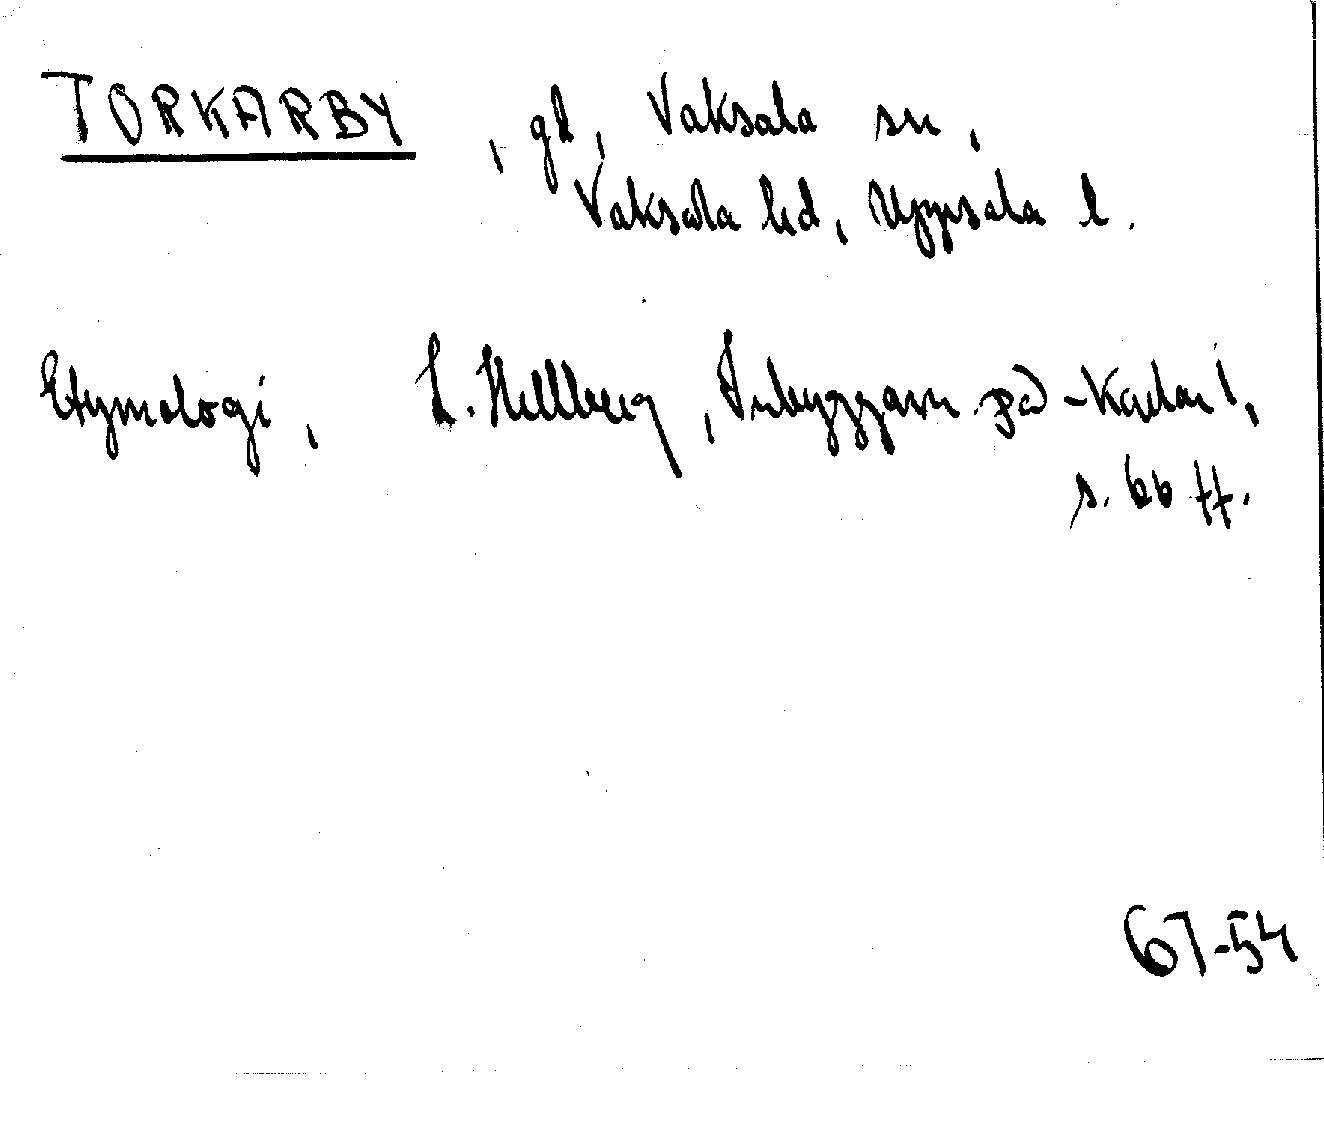 TORKARBY, gd, Vaksala sn,
Vaksala hd, Uppsala l.
Etymologi, L. Hellberg, Inbyggarn. på -karlar 1,
s. 66 ff.
67-54